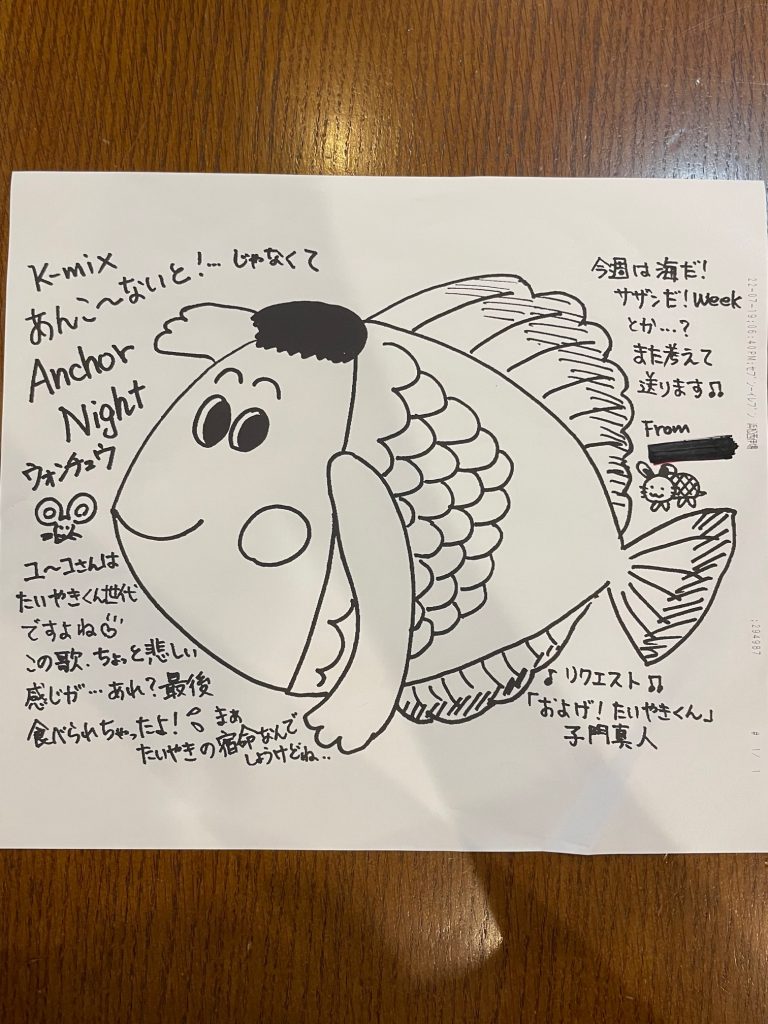 K-mix
あんこ〜ないと!… じゃなくて
Anchor
Night
ウォンチュウ
ユ〜コさんは
たいやきくん世代
ですよね
この歌、ちょっと悲しい
感じが…あれ?最後
食べられちゃったよ! まぁ
たいやきの宿命なんで
しょうけどね..
今週は海だ!
サザンだ!Week
とか…?
また考えて
送ります♫
From
♪リクエスト♫
「およげ!たいやきくん」
子門真人
22-07-19;06:40PM;セブンーイレブン
;294987
# 1/ 1